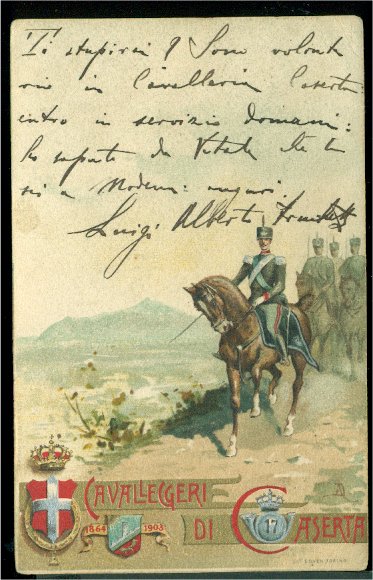 Ti stupirai? Sono volonta
rio in Cavalleria Caserta:
entro in servizio domani:
ho saputo da Vitale che tu
sei a Modena: auguri.
Luigi Alberto
CAVALLEGGERI
1864 1903
DI 17 CASERTA